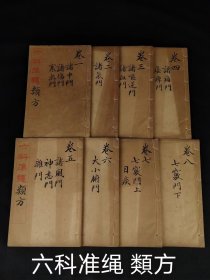 六科準繩 類方
卷一
諸中門
諸傷門
寒熱門
卷二
諸氣門
卷三
諸嘔逆門
諸血門
卷四
諸痛門
痿痹門
六科準繩 類方
卷五
諸風門
神志門
雜門
卷六
大小腑門
卷七
七竅門上
目疾
卷八
七竅門下
六科准绳 類方